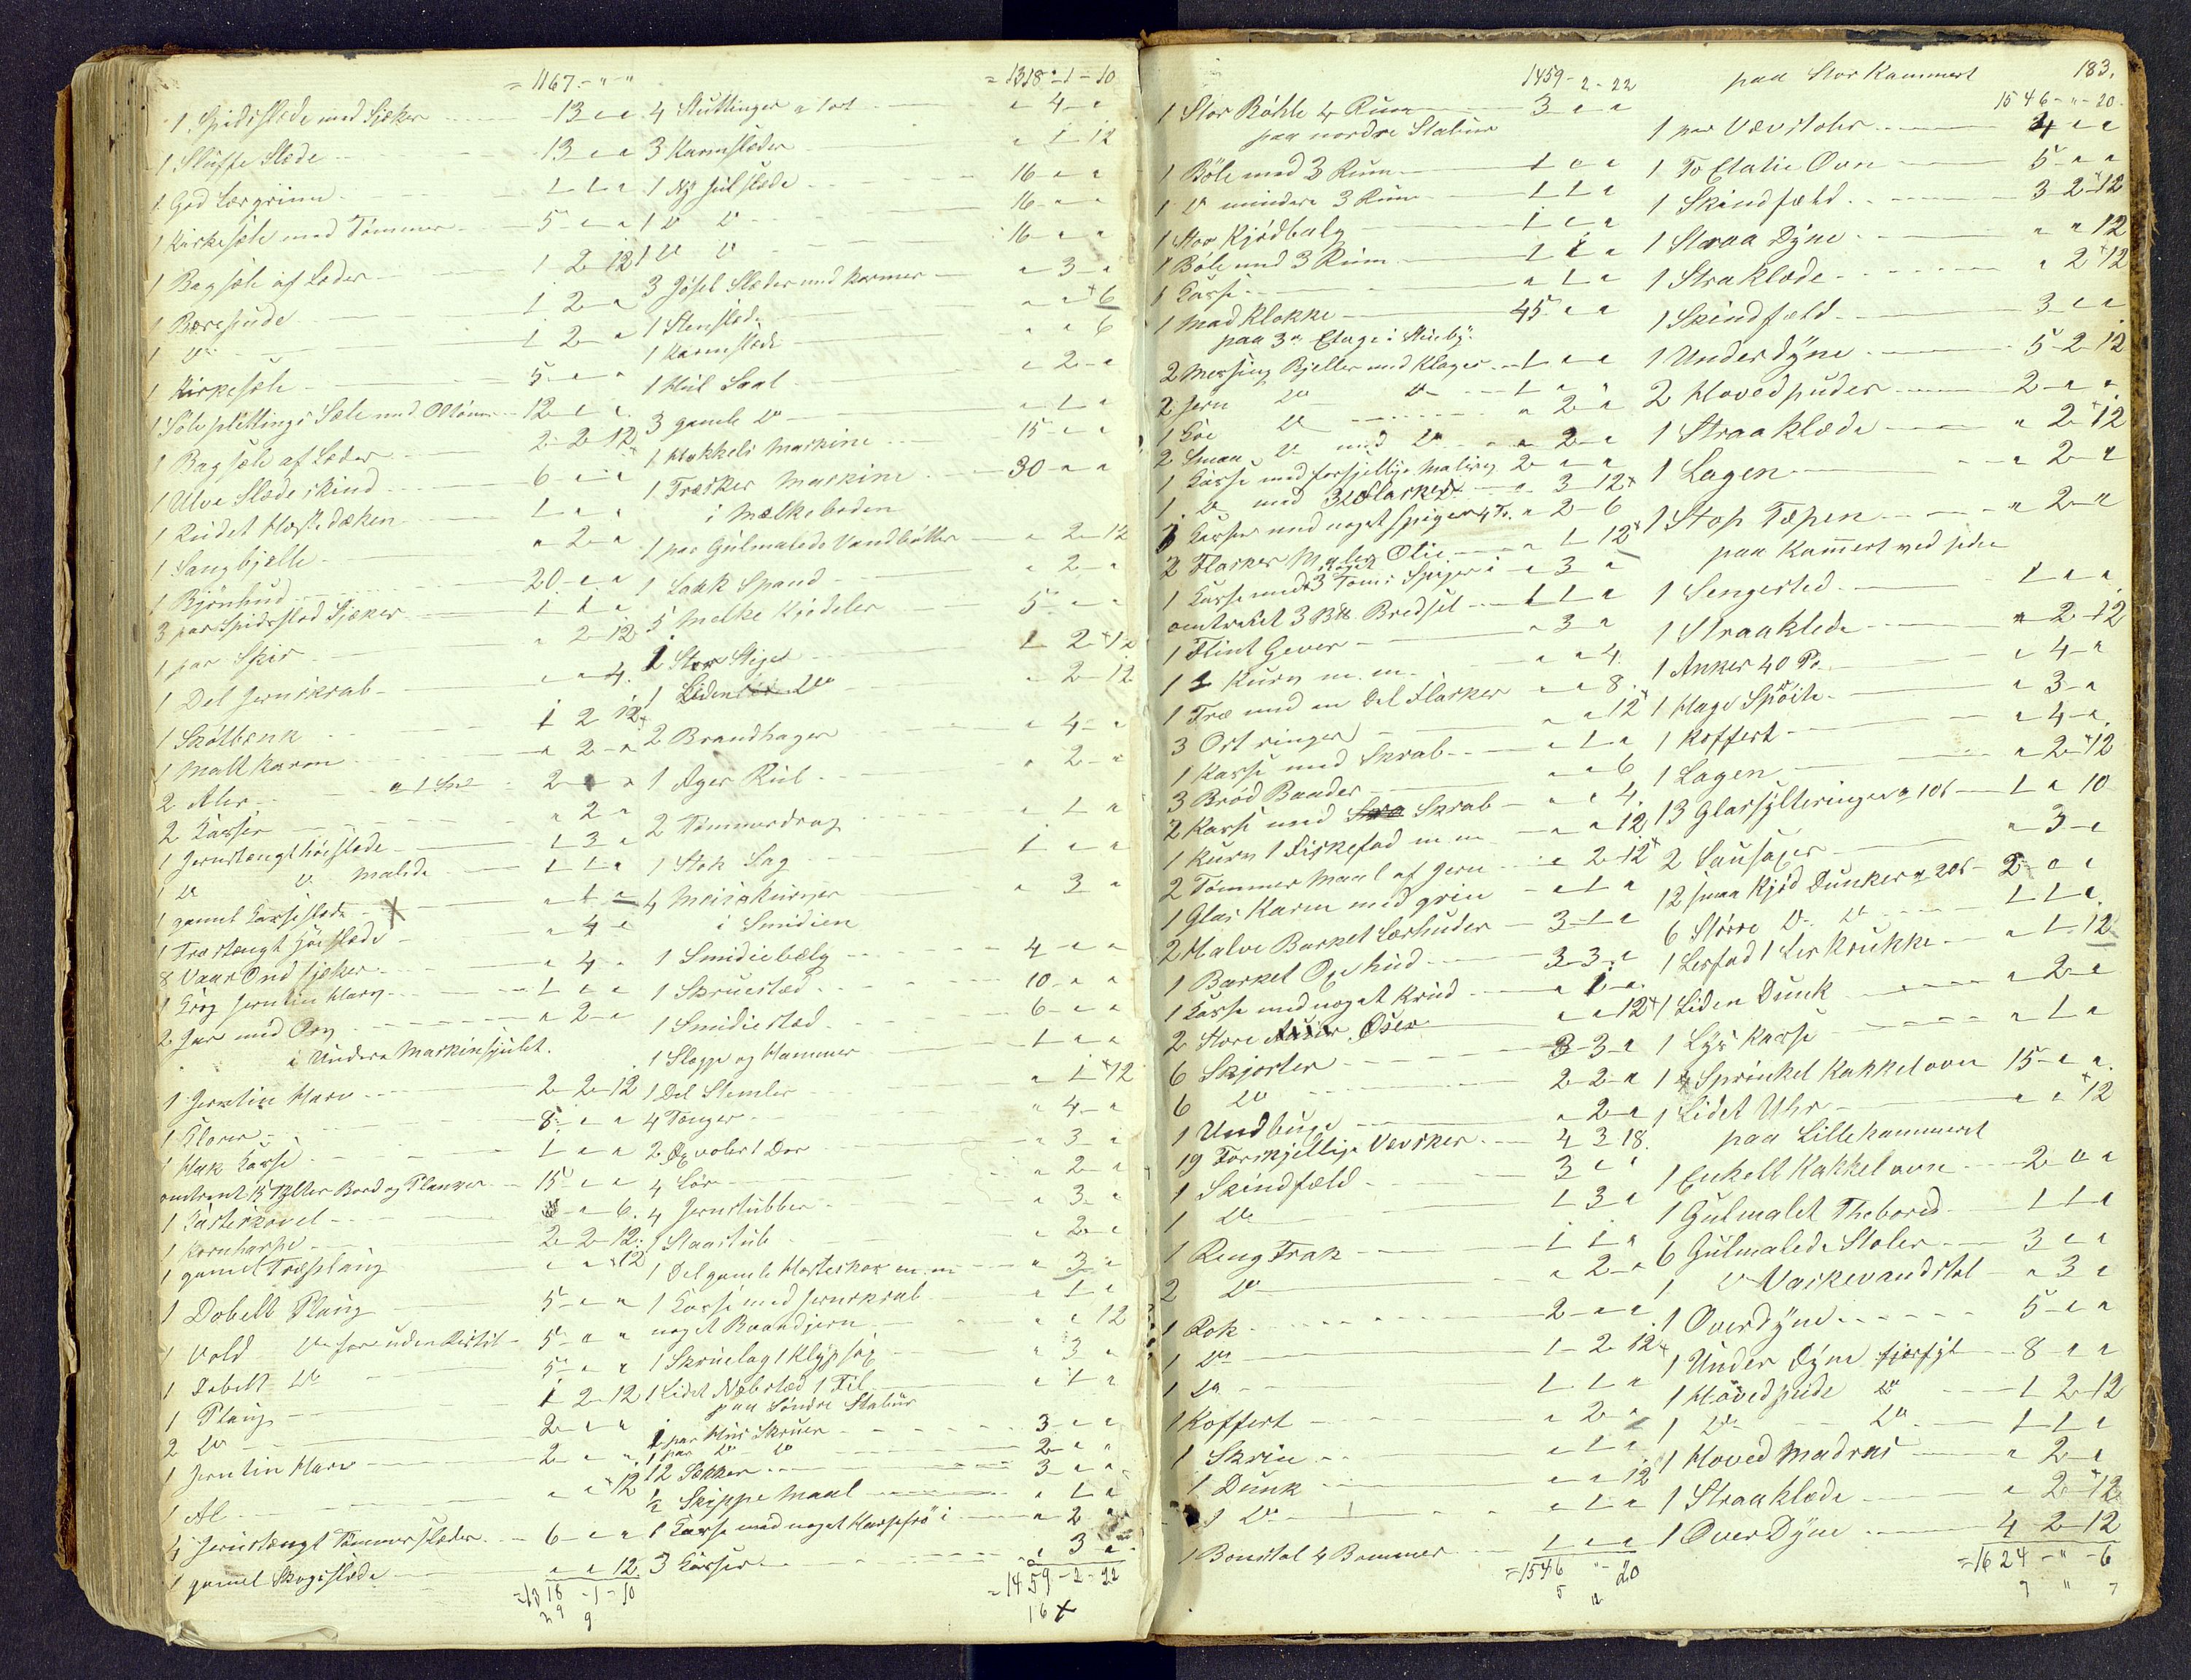 = 1167 - " - "
1 Spidsslæde med Skjæker 13 " "
1 Sluffe Slæde 13 " "
1 God Lærgrime 1 1 "
1 Kirkesæle med Tømmer 5 " "
1 Bagsæle af Læder 1 2 12
1 Bærepude 1 2 "
1 Do 1 2 "
1 Kirkesæle 5 " "
1 Sølvplettings Sæle med 12 " "
1 Bagsæle af Læder 2 2 12
1 Ulve Slædeskind 6 " "
1 Rudet Hestedæken 1 " "
1 Sangbjelle " 2 "
1 Bjørnhud 20 " "
3 par Spidsslæd Skjæker 1 1 "
1 par Skie " 2 12
1 Del Jernskrab " " 4
1 Skötbenk 1 2 12
1 Maltkarm " 2 "
2 Aler a 1 Spd 2 " "
2 Kasser " 2 "
1 Jernslængt höeslæde 1 3 "
1 Do Do Malede 1 1 "
1 gamel Kassesläde " 1 "
1 Træslængt Höeslæde " 4 "
8 Vaar Ond Skjæker " 4 "
1 Krog Jerntin Harv 1 " "
2 Jur med Ovn " 2 "
i Undere Maskinskjulet.
1 Jerntin Harv 2 2 12
1 Klover 8 " "
1 Hak Kasse 1 " "
omtrent 15 Tylter Bord og Planker 15 " "
1 Kasteskovel " " 6
1 Kornharpe 2 2 12
1 gamel Træplaug " " 12
1 Dobelt Plaug 5 " "
1 Vold Do foruden Ristel 5 " "
1 Dobelt Do 5 " "
1 Plaug 1 2 12
2 Do 2 " "
1 Jerntin Harv 2 " "
1 Al " " 12
4 Jernslængt Tømmerslæder 6 " "
1 gamel Skogslæde " " 12
= 1318 - 1 - 10
= 1318 - 1 - 10
4 Stuttinger a 1 ort " 4 "
3 Karmslæder " 1 12
1 Ny Julslæde 16 " "
1 Do Do 16 " "
1 Do Do 16 " "
3 Gjösel Slæder med Karmer " 3 "
1 Stenslæde " " 6
1 Karmslæde " " 6
1 Hiul Saal " 2 "
3 gamle Do " 1 "
1 Hakkels Maskine 15 " "
1 Træsker Maskine 30 " "
i Mælkeboden
1 par Gulmalede Vandbötter " 2 12
1 Laak Spand " 2 "
5 Melke Kjödeler 5 " "
1 Stor Stige 1 2 12
1 Liden Do " 2 12
2 Brandhager " 4 "
1 Ager Rul " 2 "
2 Tömmerdrag " 1 "
1 Stok Sag 1 " "
4 Meisekurver " 3 "
i Smidien
1 Smidiebælg 4 " "
1 Skruestæd 10 " "
1 Smidiestæd 6 " "
1 Slægge og Hammer 1 " "
1 Del Stemler " 1 12
4 Tænger " 4 "
2 Øxer 1 Dor " 3 "
4 Lör " 2 "
4 Jernstubber " 3 "
1 Staastub " 2 "
1 Del gamle Hesteskor m.m " 3 "
1 Kasse med Jernskrab " 1 "
noget Baandjern " " 12
1 Skruelag 1 Klypsag " 3 "
1 Lidet Næbstæd 1 Fil " 1 "
paa Söndre Stabur
1 par Huus Skruer 3 " "
1 par Do Do 2 " "
12 Sækker 3 " "
½ Skippe Maal " 1 "
1 Kasse med noget Harpefrö i " 2 "
3 Kasser " 3 "
= 1459 - 2 - 22
16 x
1459 - 2 - 22
1 Stor Böhle 4 Rum 3 " "
paa nordre Stabur
1 Böle med 3 Rum 1 " "
1 Do mindere 3 Rum 1 1 "
1 Stor Kjödbalg 1 " "
1 Böle med 3 Rum 1 1 "
1 Kasse " 1 "
1 Mad Klokke 45 " "
paa 3de Etage i Stueby:
2 Messing Bjeller med Klaver 1 " "
2 Jern Do Do 1 " "
1 Koe Do " 2 "
2 Smaa Do med Do " 2 "
1 Kasse med forskjellige Maling 2 " "
1 Do med 32 Flasker " 3 12
1 Kasser med noget Spiger 4 T. " 2 6
2 Flasker Maler Olie " 1 12
1 Kasse med noget 3 Toms Spiger i " 3 "
omtrent 3 B℔ Bredsel 1 1 "
1 Flint Gever " 3 "
1 Kurv m.m. " " 4
1 Træ med en Del Flasker " " 8
3 Ort ringer " " 12
1 Kasse med Skrab " 1 "
3 Bröd Bander " " 6
2 Kasse med Skrab " " 4
1 Kurv 1 Fiskefad m m " " 12
2 Tömmer Maal af Jern " 2 12
1 Glas Karm med grin " 1 "
2 Halve Barket Lærhuder 3 1 "
1 Barket Oxehud 3 3 "
1 Kasse med noget Krud " 1 "
2 Store Öser " " 12
6 Skjorter 3 3 "
6 Do 2 2 "
1 Undbuxe " 2 "
19 Forskjellige Vævsker 4 3 18
1 Skindfæld 3 " "
1 Do 1 3 "
1 Reng Frak 1 1 "
2 Do " 2 "
1 Rok 2 " "
1 Do 1 2 12
1 Do 1 1 "
1 Koffert " 2 "
1 Skrin " 1 "
1 Dunk " " 12
1 Do " 1 "
1 Bomstol 4 Bommer 1 " "
= 1546 " - 20
paa Stor Kammert
183.
1546 - " - 20
1 par Vævstoler 4 " "
1 To Etatie Ovn 5 " "
1 Skindfæld 3 2 12
1 Straa Dyne " " 12
1 Straklæde " 2 12
1 Skindfæld 3 " "
1 Underdyne 5 2 12
2 Hovedpuder 2 " "
1 Straaklæde " 2 12
1 Lagen " 2 "
1 Stop Tæpen " 2 "
paa Kammert ved siden
1 Sengested 1 " "
1 Straaklede " 2 12
1 Anker 40 P. " 4 "
1 Hage Spöite " 3 "
1 Koffert " 4 "
1 Lagen " 2 12
13 Glassylteringer a 10s 1 " 10
2 Sauaxer " 3 "
12 smaa Kjöd Dunker a 20s 2 " "
6 Större Do Do 1 1 "
1 Lerfad 1 Ler Krukke " 1 12
1 Liden Dunk " 2 "
1 Lys Kasse " 1 "
1 Sprinket Kakkelovn 15 " "
1 Lidet Uhr " " 12
paa Lillekammeret
1 Enkelt Kakkelovn 2 " "
1 Gulmalet Thebord 1 1 "
6 Gulmalede Stoler 3 " "
1 Do Vaskevandstol " 3 "
1 Overdyne 5 " "
1 Under Dyne fjærfyl 8 " "
1 Hovedpude Do 1 2 12
1 Do Do 1 1 "
1 Hoved Madras " 2 "
1 Straaklæde " 2 12
1 Over Dyne 4 2 12
= 1624 - " - 6